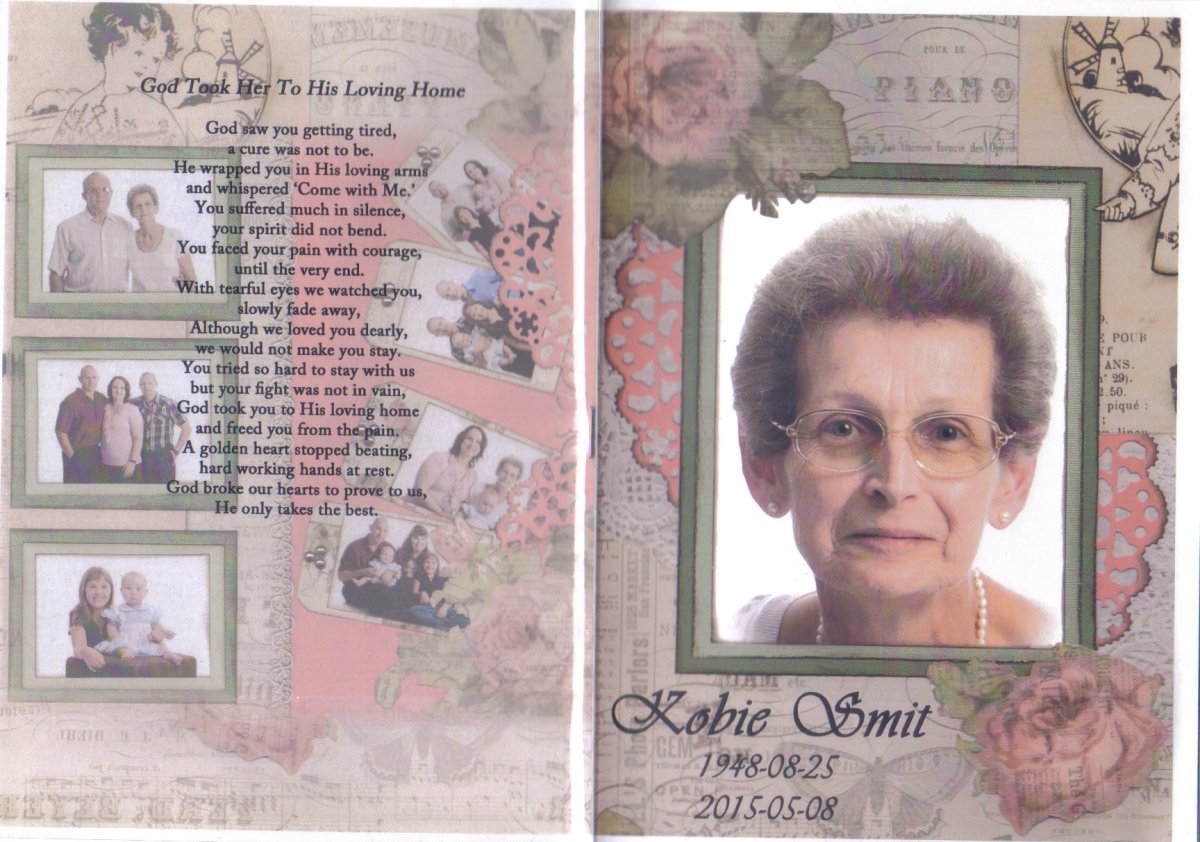 God Took Her To His Loving Home
God saw you getting tired,
a cure was not to be.
He wrapped you in His loving arms
and whispered ‘Come with Me.’
You suffered much in silence,
your spirit did not bend.
You faced your pain with courage,
until the very end.
With tearful eyes we watched you,
slowly fade away,
Although we loved you dearly,
we would not make you stay.
You tried so hard to stay with us
but your fight was not in vain,
God took you to His loving home
and freed you from the pain.
A golden heart stopped beating,
hard working hands at rest.
God broke our hearts to prove to us,
He only takes the best.
POUR LE
PIANO
POUR
ANS.
piqué :
Kobie Smit
1948-08-25
2015-05-08